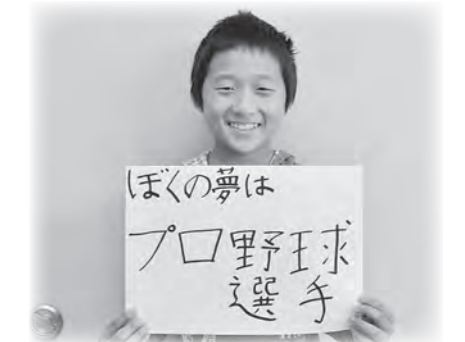 ぼくの夢は
プロ野球
選手